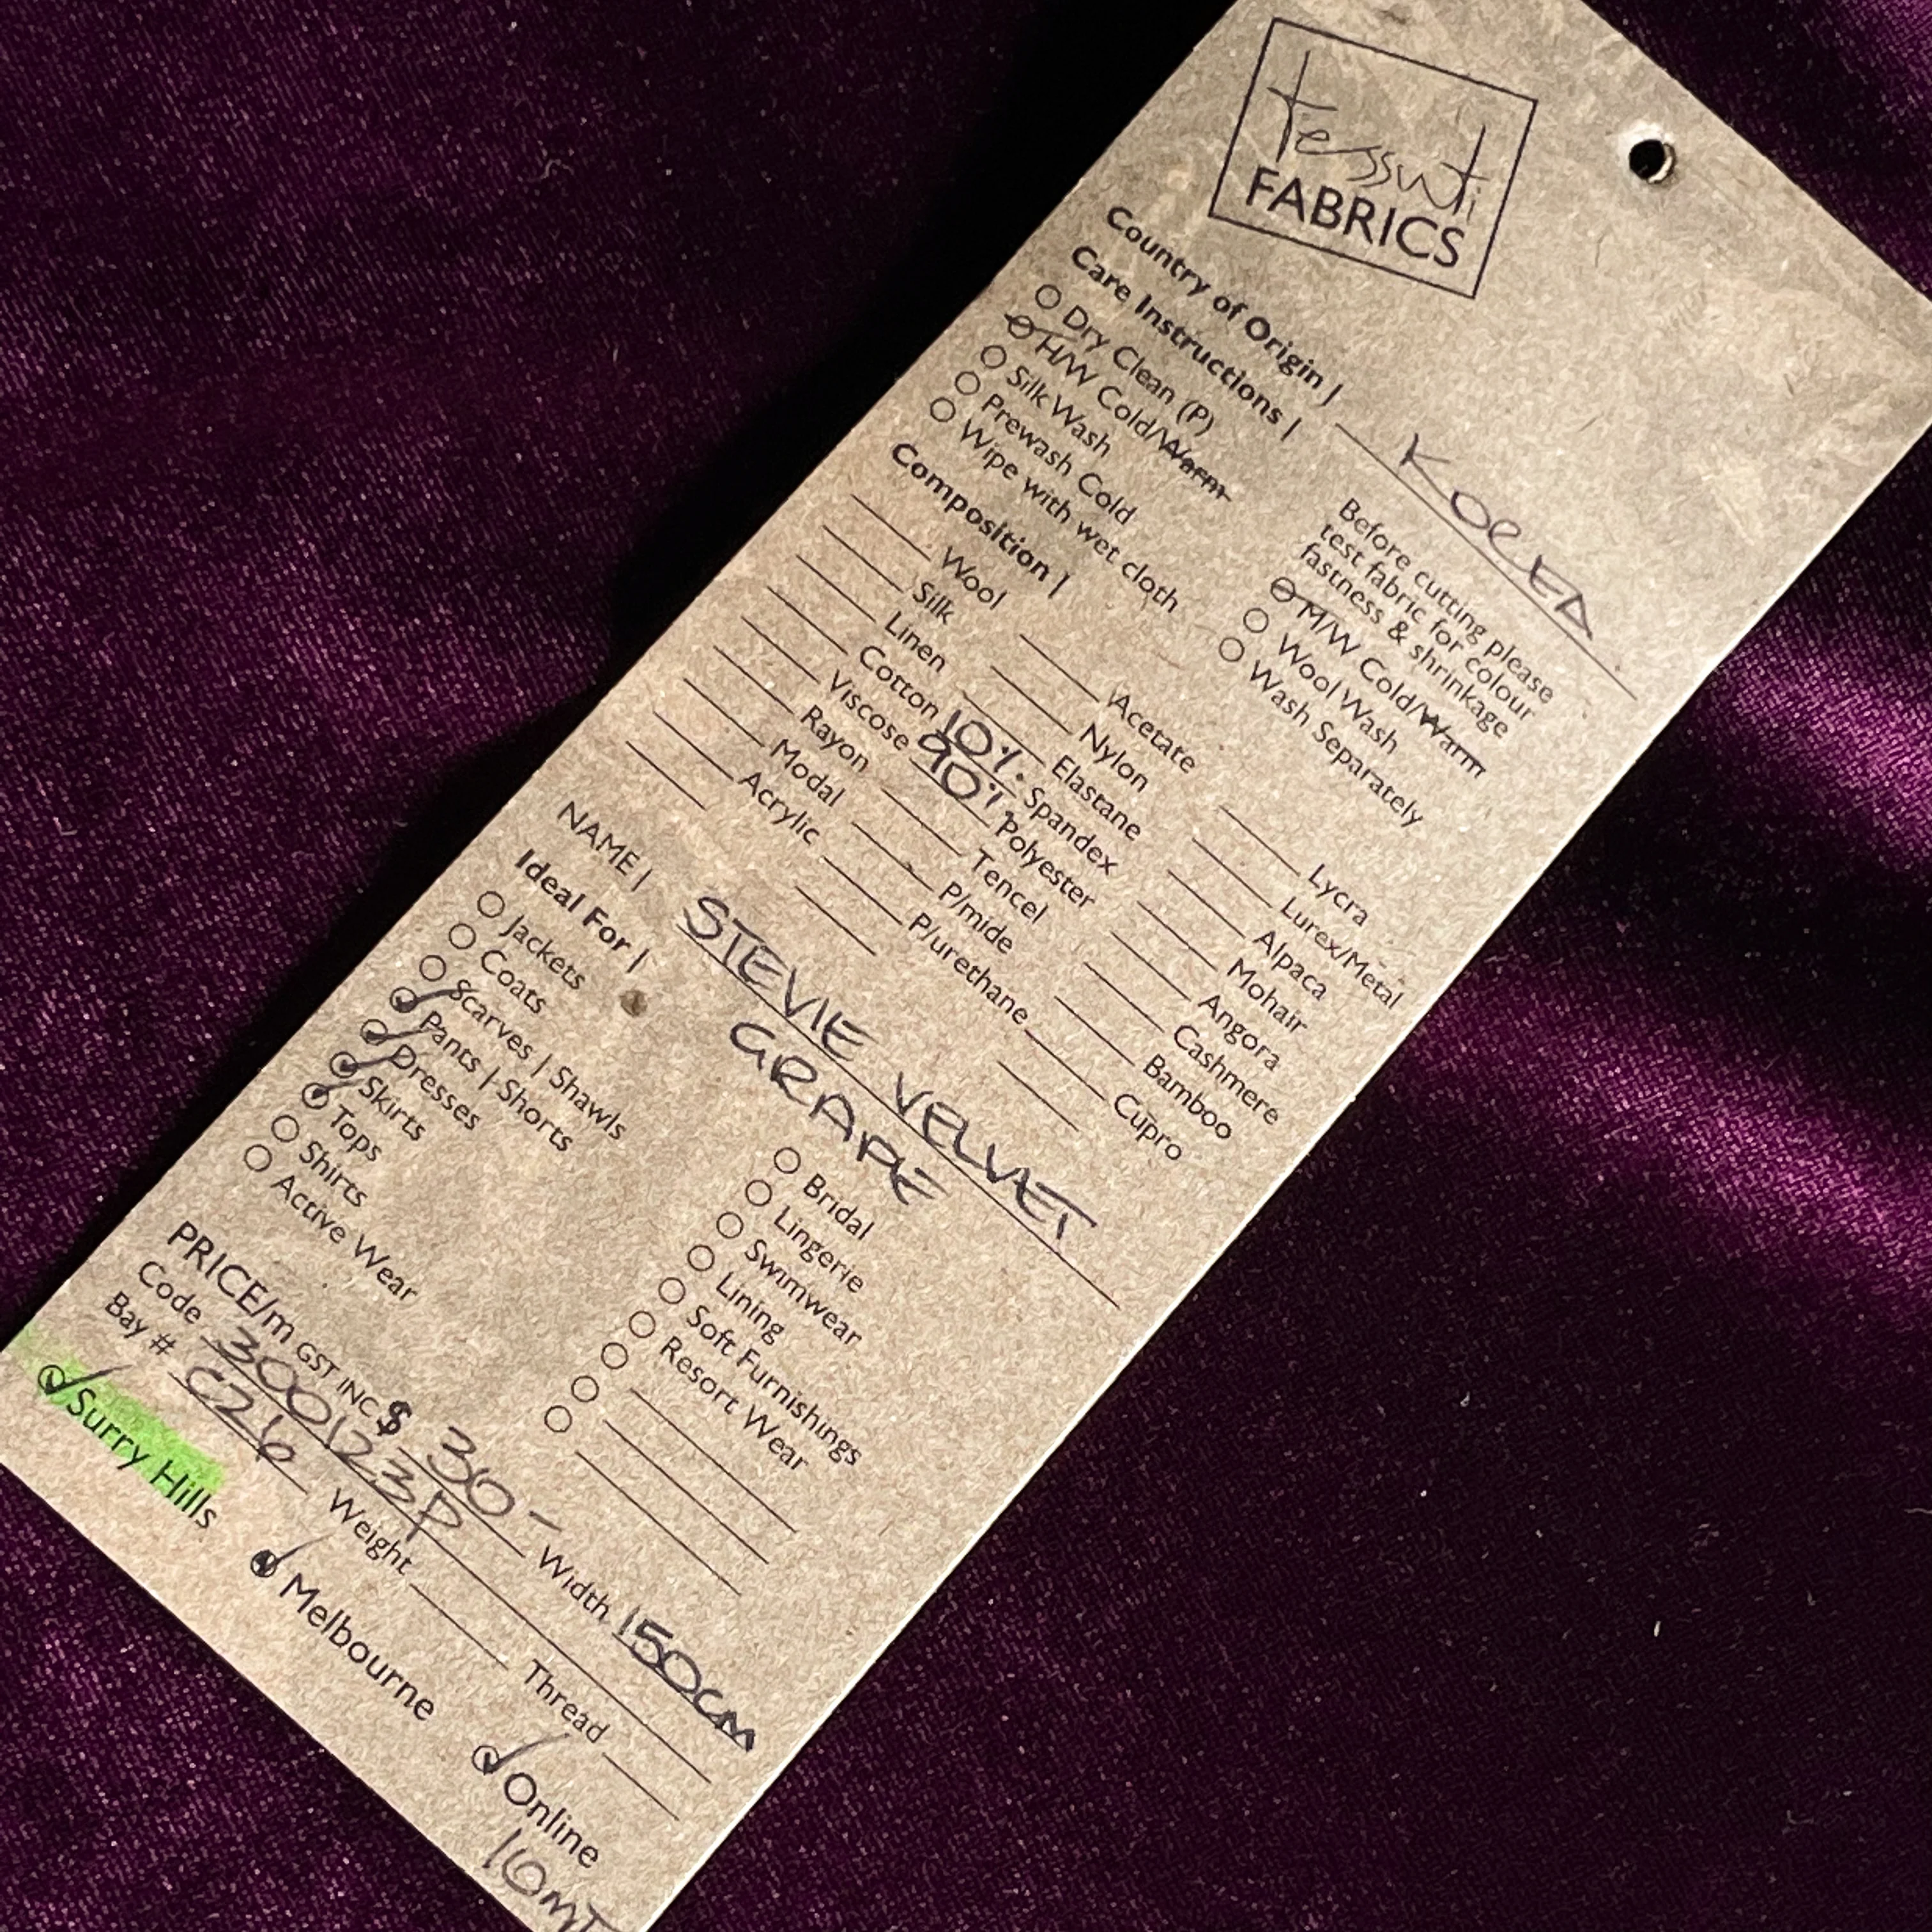 tessuti
FABRICS
Country of Origin | KOREA
Care Instructions |
Before cutting please
test fabric for colour
fastness & shrinkage
Dry Clean (P)
H/W Cold/Warm
Silk Wash
Prewash Cold
Wipe with wet cloth
M/W Cold/Warm
Wool Wash
Wash Separately
Composition |
Wool
Silk
Linen
Cotton
Viscose
Rayon
Modal
Acrylic
Acetate
Nylon
Elastane
10% Spandex
90% Polyester
Tencel
P/mide
P/urethane
Lycra
Lurex/Metal
Alpaca
Mohair
Angora
Cashmere
Bamboo
Cupro
NAME | STEVIE VELVET
GRAPE
Ideal For |
Jackets
Coats
Scarves | Shawls
Pants | Shorts
Dresses
Skirts
Tops
Shirts
Active Wear
Bridal
Lingerie
Swimwear
Lining
Soft Furnishings
Resort Wear
PRICE/m GST INC $ 30 - Width 150cm
Code 300123P
Bay # C26 Weight Thread
Surry Hills Melbourne Online